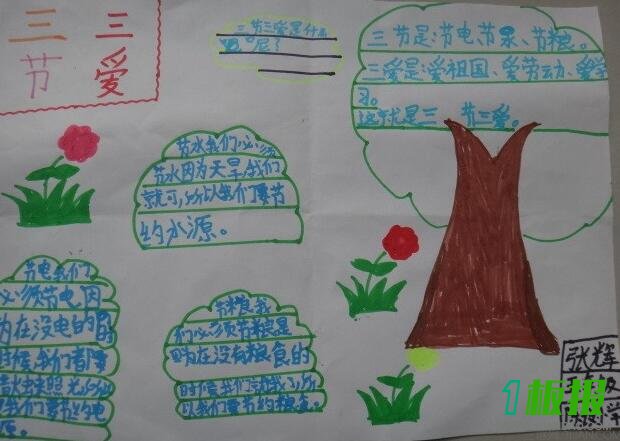 三 三
节 爱
三节三爱是什么
呢?
三节是:节电、节水、节粮。
三爱是:爱祖国、爱劳动、爱学
习。
这就是三节三爱。
节水我们必须
节水因为天旱,我们
就可,所以我们要节
约水源。
节电我们
必须节电,因
为在没电的
时候,我们都要
节粮我
们必须节粮是
因为在没有粮食的
时候我们
以我们要节约粮食。
张辉
1板报